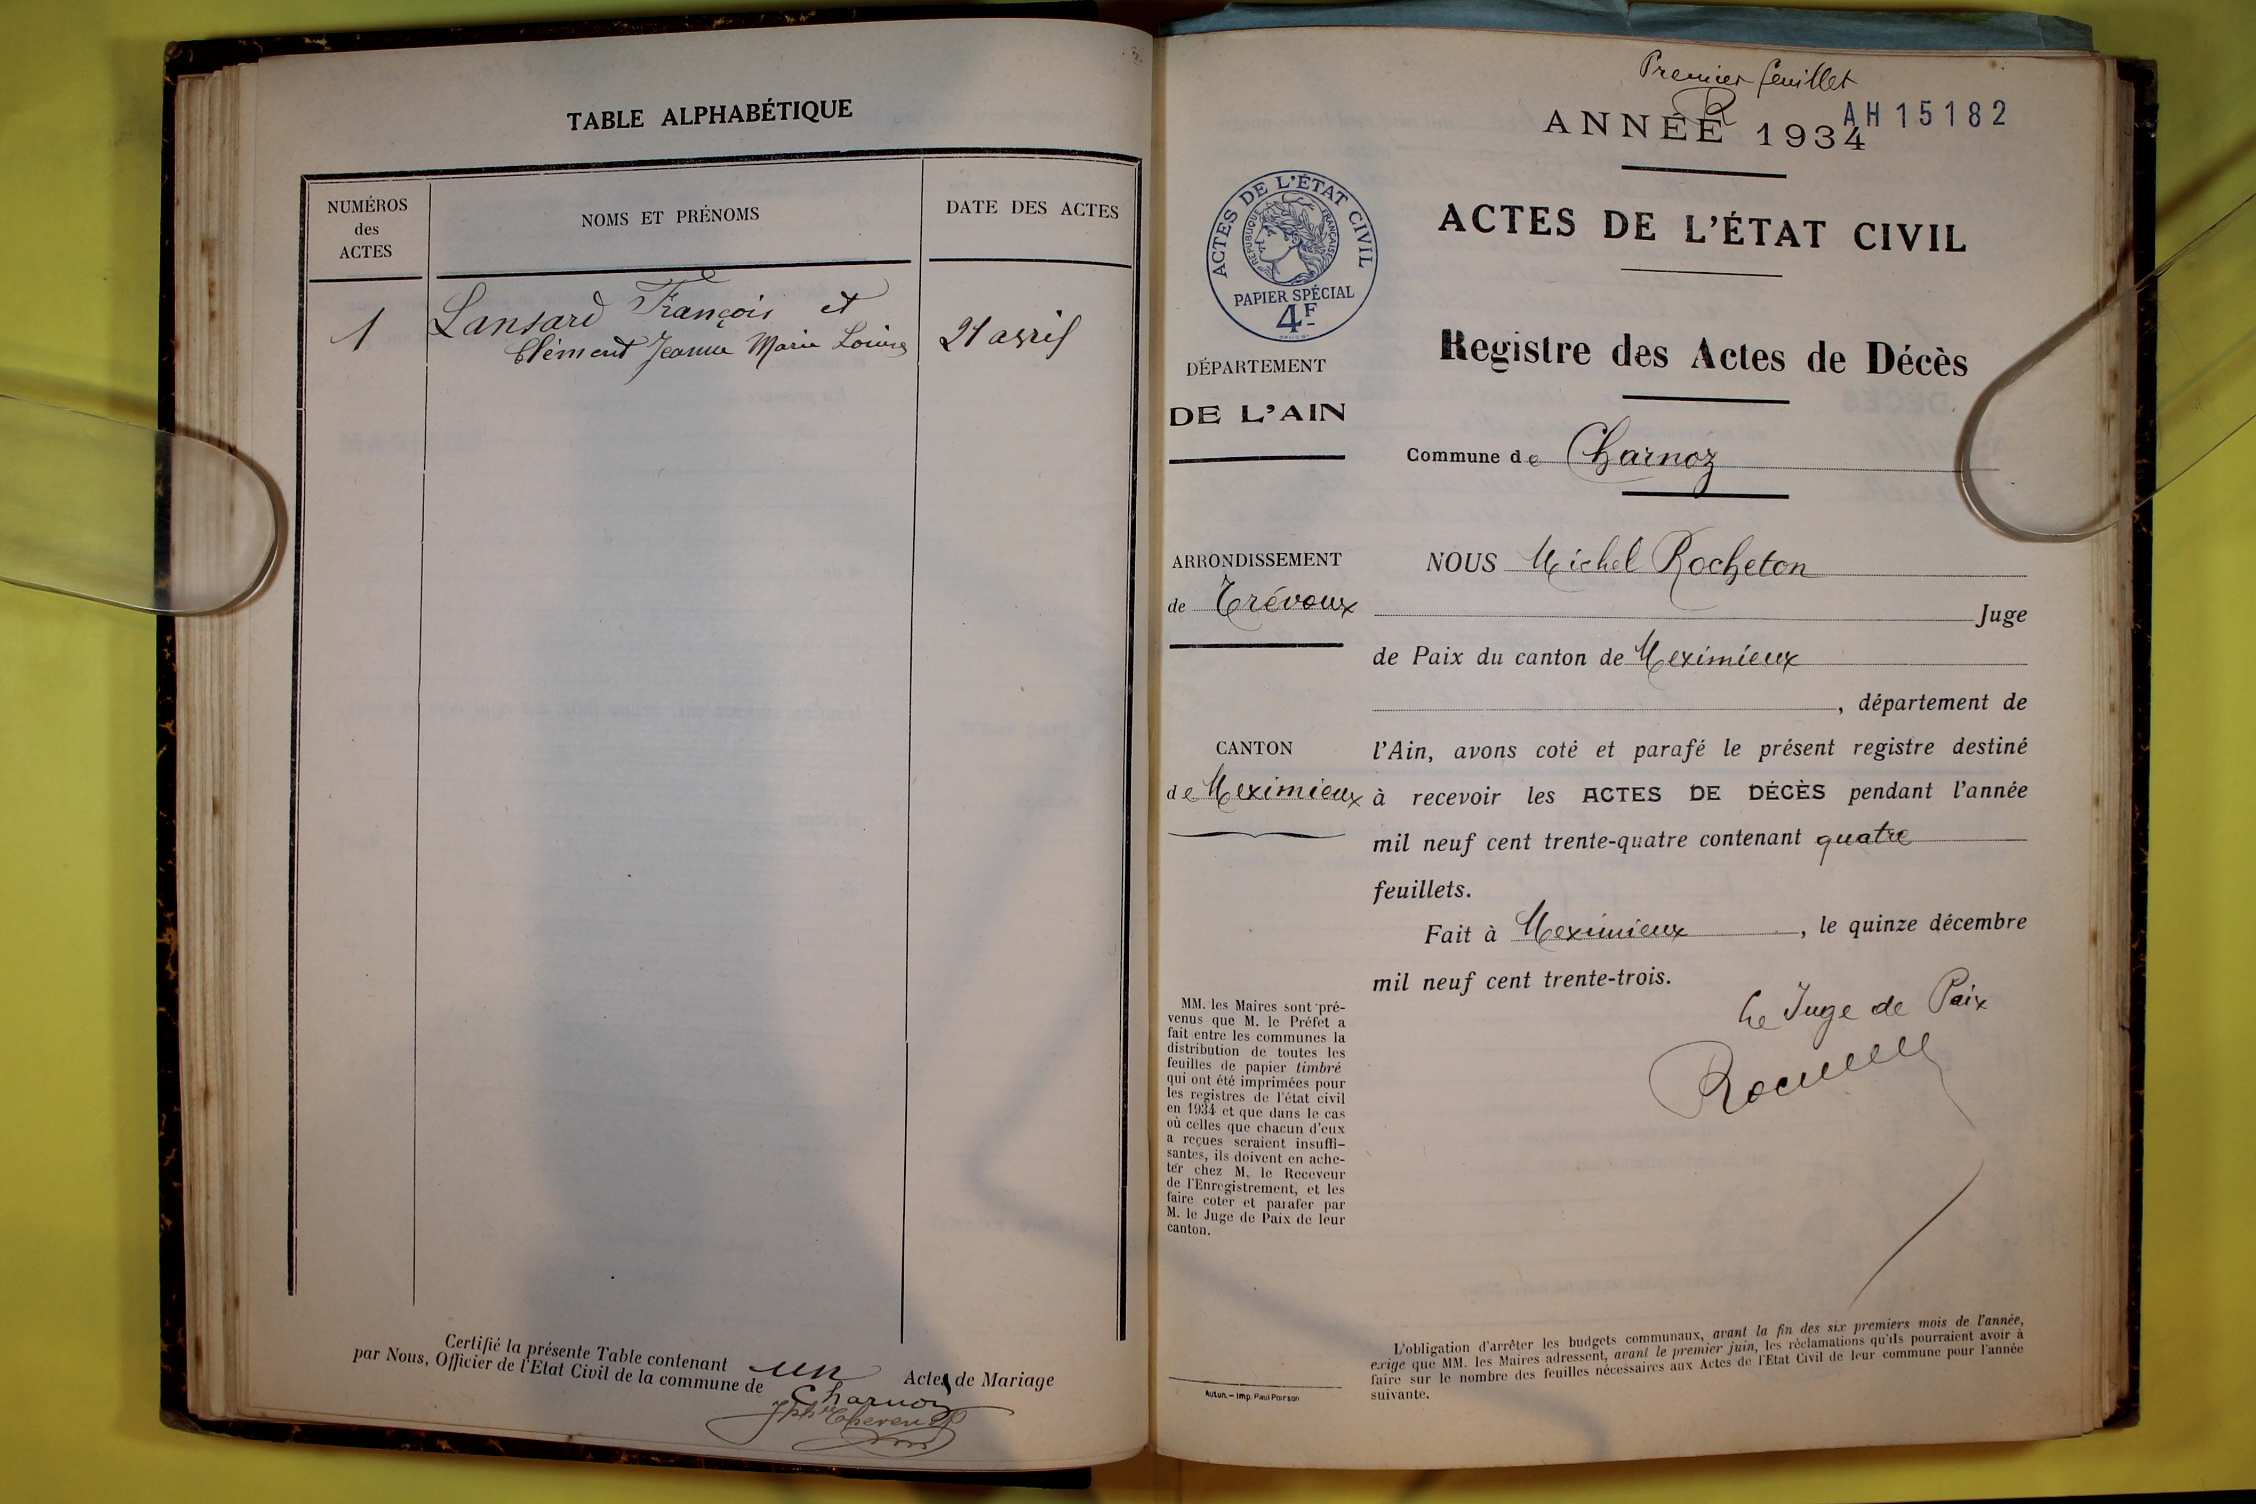 TABLE ALPHABÉTIQUE
NUMÉROS
des
ACTES
NOMS ET PRÉNOMS
DATE DES ACTES
1
Lansard François et
Clément Jeanne Marie Louise
21 avril
Certifié la présente Table contenant un Actes de Mariage
par Nous, Officier de l'Etat Civil de la commune de Charnoz
Premier feuillet
AH 15182
ANNÉE 1934
ACTES DE L'ÉTAT CIVIL
RÉPUBLIQUE FRANÇAISE
PAPIER SPÉCIAL
4F
ACTES DE L'ÉTAT CIVIL
Registre des Actes de Décès
DÉPARTEMENT
DE L'AIN
Commune de Charnoz
ARRONDISSEMENT
de Trévoux
CANTON
de Meximieux
NOUS Michel Rocheton
Juge
de Paix du canton de Meximieux
, département de
l'Ain, avons coté et parafé le présent registre destiné
à recevoir les ACTES DE DÉCÈS pendant l'année
mil neuf cent trente-quatre contenant quatre
feuillets.
Fait à Meximieux, le quinze décembre
mil neuf cent trente-trois.
Le Juge de Paix
MM. les Maires sont pré-
venus que M. le Préfet a
fait entre les communes la
distribution de toutes les
feuilles de papier timbré
qui ont été imprimées pour
les registres de l'état civil
en 1934 et que dans le cas
où celles que chacun d'eux
a reçues seraient insuffi-
santes, ils doivent en ache-
ter chez M. le Receveur
de l'Enregistrement, et les
faire coter et parafer par
M. le Juge de Paix de leur
canton.
Autun. – Imp. Paul Poirson
L'obligation d'arrêter les budgets communaux, avant la fin des six premiers mois de l'année,
exige que MM. les Maires adressent, avant le premier juin, les réclamations qu'ils pourraient avoir à
faire sur le nombre des feuilles nécessaires aux Actes de l'Etat Civil de leur commune pour l'année
suivante.